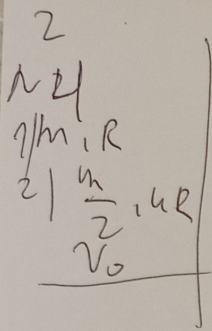 2
N 21
1) m, R
2) m/2, 4R
V₀